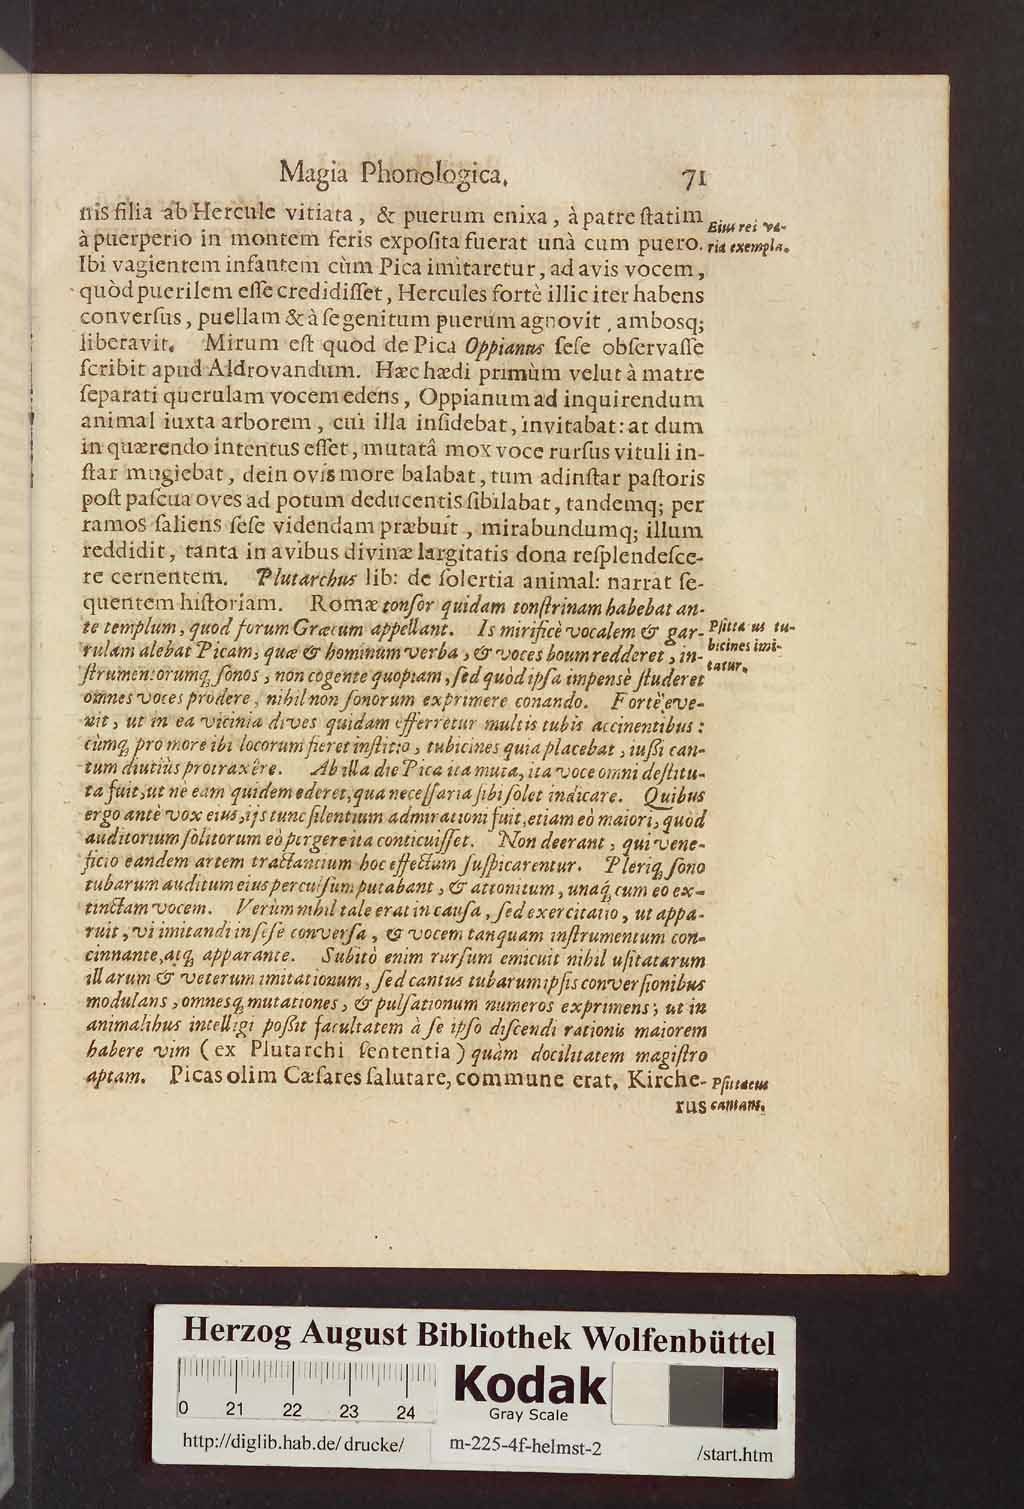 Magia Phonologica. 71
nis filia ab Hercule vitiata, & puerum enixa, à patre ſtatim
à puerperio in montem feris expoſita fuerat unà cum puero.
Eius rei va-
ria exempla.
Ibi vagientem infantem cùm Pica imitaretur, ad avis vocem,
quòd puerilem eſſe credidiſſet, Hercules fortè illic iter habens
converſus, puellam & à ſe genitum puerum agnovit, ambosq;
liberavit. Mirum eſt quod de Pica Oppianus ſeſe obſervaſſe
ſcribit apud Aldrovandum. Hæc hædi primùm velut à matre
ſeparati querulam vocem edens, Oppianum ad inquirendum
animal iuxta arborem, cui illa inſidebat, invitabat: at dum
in quærendo intentus eſſet, mutatâ mox voce rurſus vituli in-
ſtar mugiebat, dein ovis more balabat, tum ad inſtar paſtoris
poſt paſcua oves ad potum deducentis ſibilabat, tandemq; per
ramos ſaliens ſeſe videndam præbuit, mirabundumq; illum
reddidit, tanta in avibus divinæ largitatis dona reſplendeſce-
re cernentem. Plutarchus lib: de ſolertia animal: narrat ſe-
quentem hiſtoriam. Romæ tonſor quidam tonſtrinam habebat an-
te templum, quod forum Græcum appellant. Is mirificè vocalem & gar-
rulam alebat Picam, quæ & hominum verba, & voces boum redderet, in-
ſtrumentorumq; ſonos, non cogente quopiam, ſed quòd ipſa impensè ſtuderet
Pſitta us tu-
bicines imi-
tatur.
omnes voces prodere, nihil non ſonorum exprimere conando. Fortè eve-
nit, ut in ea vicinia dives quidam efferretur multis tubis accinentibus:
cùmq; pro more ibi locorum fieret inſtitio, tubicines quia placebat, iuſsi can-
tum diutiùs protraxêre. Ab illa die Pica ita muta, ita voce omni deſtitu-
ta fuit, ut ne eam quidem ederet, qua neceſſaria ſibi ſolet indicare. Quibus
ergo antè vox eius, ijs tunc ſilentium admirationi fuit, etiam eò maiori, quòd
auditorium ſolitorum eò pergere ita conticuiſſet. Non deerant, qui vene-
ficio eandem artem tractantium hoc effectum ſuſpicarentur. Pleriq; ſono
tubarum auditum eius perculſum putabant, & attonitum, unaq; cum eo ex-
tinctam vocem. Verùm nihil tale erat in cauſa, ſed exercitatio, ut appa-
ruit, vi imitandi in ſeſe converſa, & vocem tanquam inſtrumentum con-
cinnante, atq; apparante. Subitò enim rurſum emicuit nihil uſitatarum
illarum & veterum imitationum, ſed cantus tubarum ipſis converſionibus
modulans, omnesq; mutationes, & pulſationum numeros exprimens; ut in
animalibus intelligi poſsit facultatem à ſe ipſo diſcendi rationis maiorem
habere vim (ex Plutarchi ſententia) quàm docilitatem magiſtro
aptam. Picas olim Cæſares ſalutare, commune erat, Kirche-
rus
Pſittacus
cantans.
Herzog August Bibliothek Wolfenbüttel
Kodak
Gray Scale
0 21 22 23 24
http://diglib.hab.de/drucke/ m-225-4f-helmst-2 /start.htm